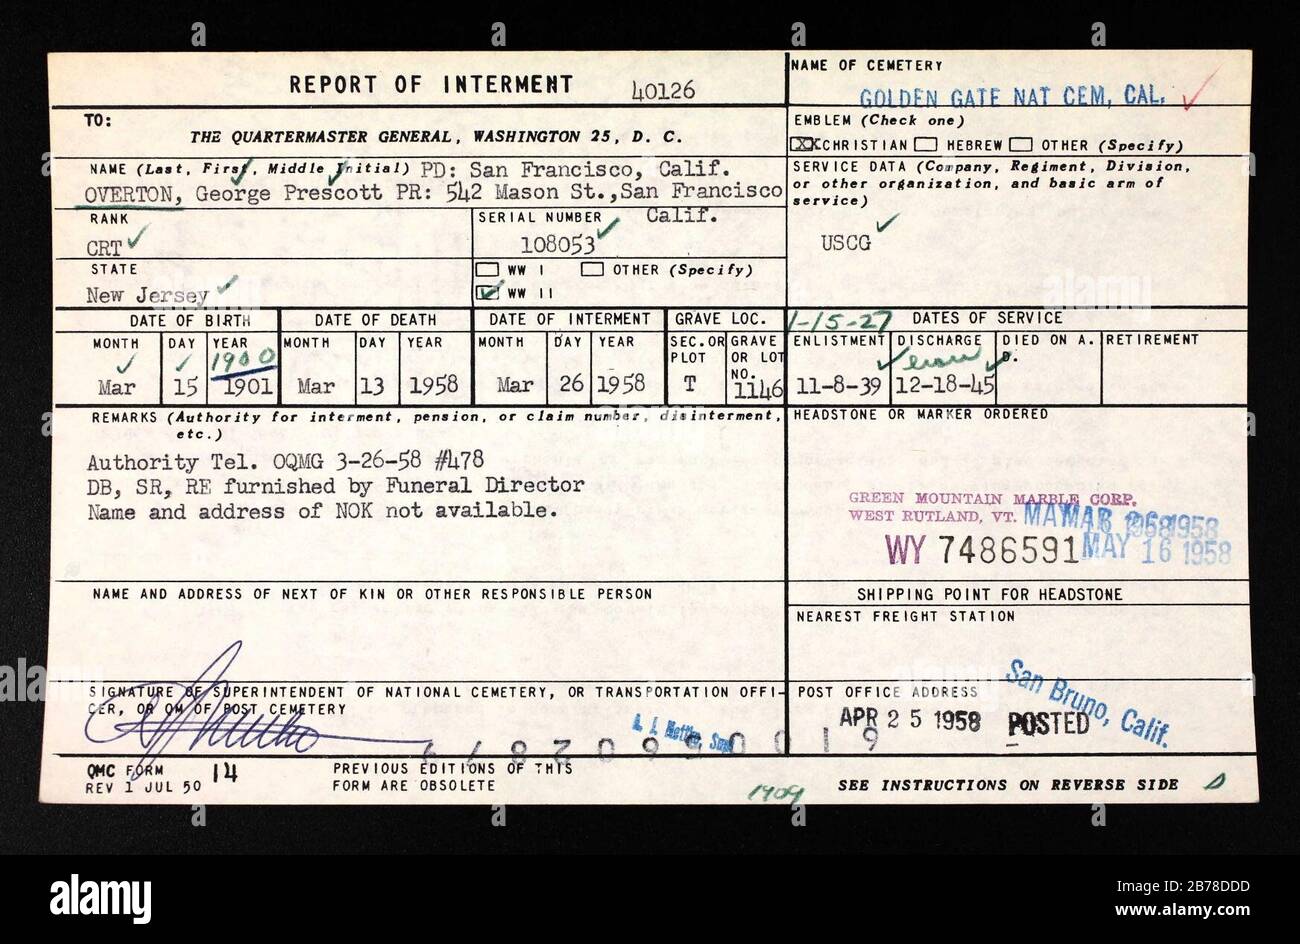 REPORT OF INTERMENT 40126
NAME OF CEMETERY
GOLDEN GATE NAT CEM, CAL.
TO:
THE QUARTERMASTER GENERAL, WASHINGTON 25, D. C.
EMBLEM (Check one)
XX CHRISTIAN HEBREW OTHER (Specify)
NAME (Last, First, Middle Initial) PD: San Francisco, Calif.
OVERTON, George Prescott PR: 542 Mason St., San Francisco
Calif.
SERVICE DATA (Company, Regiment, Division,
or other organization, and basic arm of
service)
USCG
RANK
CRT
SERIAL NUMBER
108053
STATE
New Jersey
WW I OTHER (Specify)
WW II
DATE OF BIRTH DATE OF DEATH DATE OF INTERMENT GRAVE LOC. 1-15-27 DATES OF SERVICE
MONTH DAY YEAR MONTH DAY YEAR MONTH DAY YEAR SEC. OR PLOT GRAVE OR LOT NO. ENLISTMENT DISCHARGE DIED ON A. D. RETIREMENT
1900
Mar 15 1901 Mar 13 1958 Mar 26 1958 T 1146 11-8-39 12-18-45
REMARKS (Authority for interment, pension, or claim number, disinterment,
etc.)
Authority Tel. OQMG 3-26-58 #478
DB, SR, RE furnished by Funeral Director
Name and address of NOK not available.
HEADSTONE OR MARKER ORDERED
GREEN MOUNTAIN MARBLE CORP.
WEST RUTLAND, VT.
WY 7486591 MAY 16 1958
NAME AND ADDRESS OF NEXT OF KIN OR OTHER RESPONSIBLE PERSON
SHIPPING POINT FOR HEADSTONE
NEAREST FREIGHT STATION
San Bruno, Calif.
SIGNATURE OF SUPERINTENDENT OF NATIONAL CEMETERY, OR TRANSPORTATION OFFI-
CER, OR QM OF POST CEMETERY
POST OFFICE ADDRESS
APR 25 1958 POSTED
QMC FORM 14
REV 1 JUL 50
PREVIOUS EDITIONS OF THIS
FORM ARE OBSOLETE
1909
SEE INSTRUCTIONS ON REVERSE SIDE
alamy
Image ID: 2B78DDD
www.alamy.com